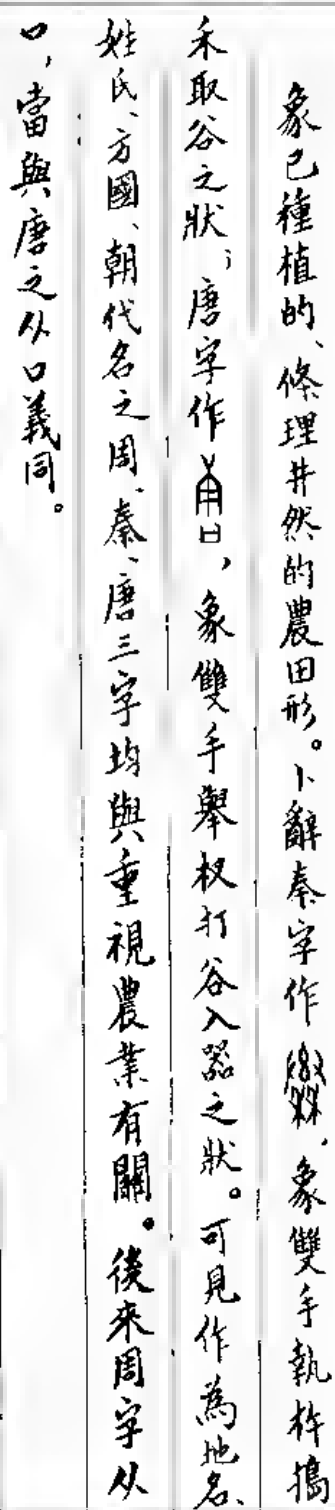 象已種植的、條理井然的農田形。卜辭秦字作，象雙手執杵搗
禾取谷之狀；唐字作，象雙手舉杈打谷入器之狀。可見作為地名、
姓氏、方國、朝代名之周、秦、唐三字均與重視農業有關。後來周字从
口，當與唐之从口義同。